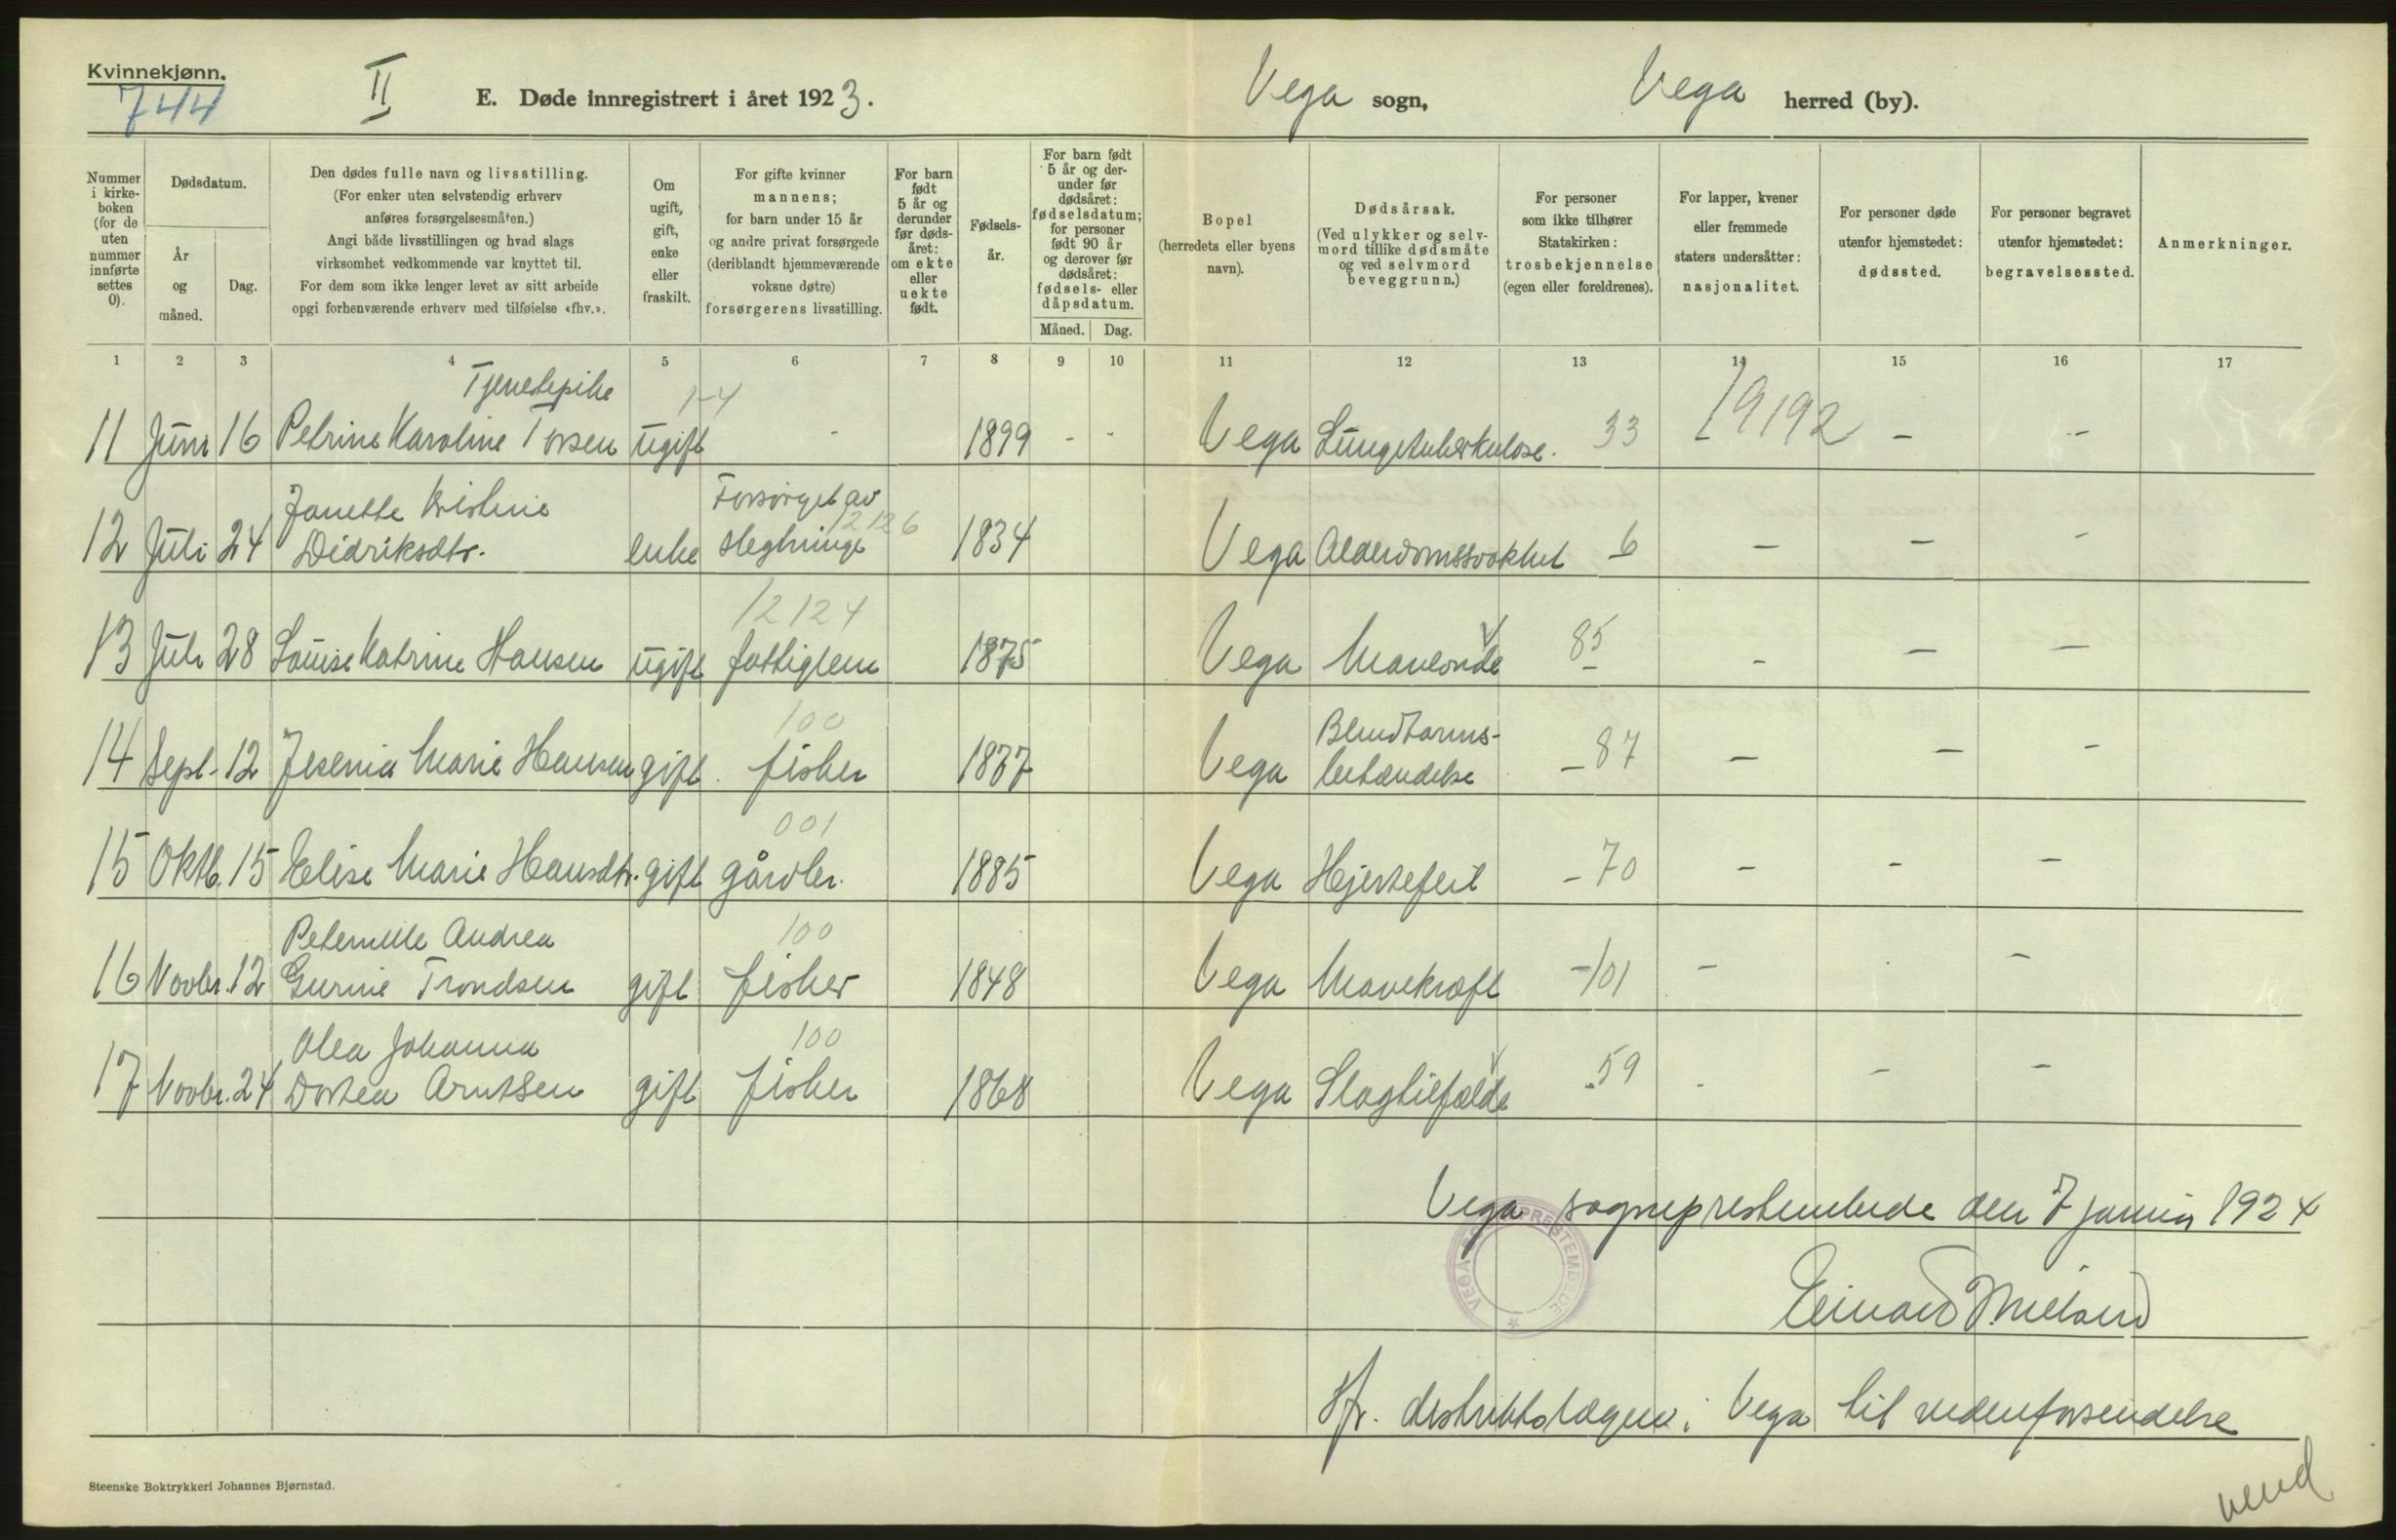 Kvinnekjønn.
744
II
E. Døde innregistrert i året 1923.
Vega sogn,
Vega herred (by).
Nummer i kirke- boken (for de uten nummer innførte settes 0).
Dødsdatum.
År og måned.
Dag.
Den dødes fulle navn og livsstilling.
(For enker uten selvstendig erhverv
anføres forsørgelsesmåten.)
Angi både livsstillingen og hvad slags
virksomhet vedkommende var knyttet til.
For dem som ikke lenger levet av sitt arbeide
opgi forhenværende erhverv med tilføielse «fhv.».
Om ugift, gift, enke eller fraskilt.
For gifte kvinner
mannens;
for barn under 15 år
og andre privat forsørgede
(deriblandt hjemmeværende
voksne døtre)
forsørgerens livsstilling.
For barn født 5 år og derunder før døds- året: om ekte eller uekte født.
Fødsels- år.
For barn født 5 år og der- under før dødsåret: fødselsdatum; for personer født 90 år og derover før dødsåret: fødsels- eller dåpsdatum.
Måned. Dag.
Bopel
(herredets eller byens
navn).
Dødsårsak.
(Ved ulykker og selv-
mord tillike dødsmåte
og ved selvmord
beveggrunn.)
For personer
som ikke tilhører
Statskirken:
trosbekjennelse
(egen eller foreldrenes).
For lapper, kvener
eller fremmede
staters undersåtter:
nasjonalitet.
For personer døde
utenfor hjemstedet:
dødssted.
For personer begravet
utenfor hjemstedet:
begravelsessted.
Anmerkninger.
1 2 3 4 5 6 7 8 9 10 11 12 13 14 15 16 17
Tjenestepike 1-4
11 Juni 16 Petrine Karoline Torsen ugift - 1899 - - Vega Lungetuberkulose. 33 19192 - -
Janette Kristine Forsørget av
12 Juli 24 Didriksdtr. enke slegtninge 12126 1834 Vega Alderdomssvakhet 6 - - -
12124
13 Juli 28 Louise Katrine Hansen ugift fattiglem 1875 Vega Maveonde 85 - - -
100 Blindtarms-
14 Sept. 12 Jesenia Marie Hansen gift. fisker 1877 Vega betændelse - 87 - - -
001
15 Oktb. 15 Elise Marie Hansdtr. gift gårdbr. 1885 Vega Hjertefeil - 70 - - -
Peternille Andrea 100
16 Novbr. 12 Gurine Trondsen gift fisker 1848 Vega Mavekræft -101 - -
Olea Johanna 100
17 Novbr. 24 Dortea Arntsen gift fisker 1868 Vega Slagtilfælde 59 - - -
Vega sogneprestembede den 7 januar 1924
VEGA SOGNEPRESTEMBEDE
Hr. distriktslægen i Vega til videreforsendelse
Steenske Boktrykkeri Johannes Bjørnstad.
vend